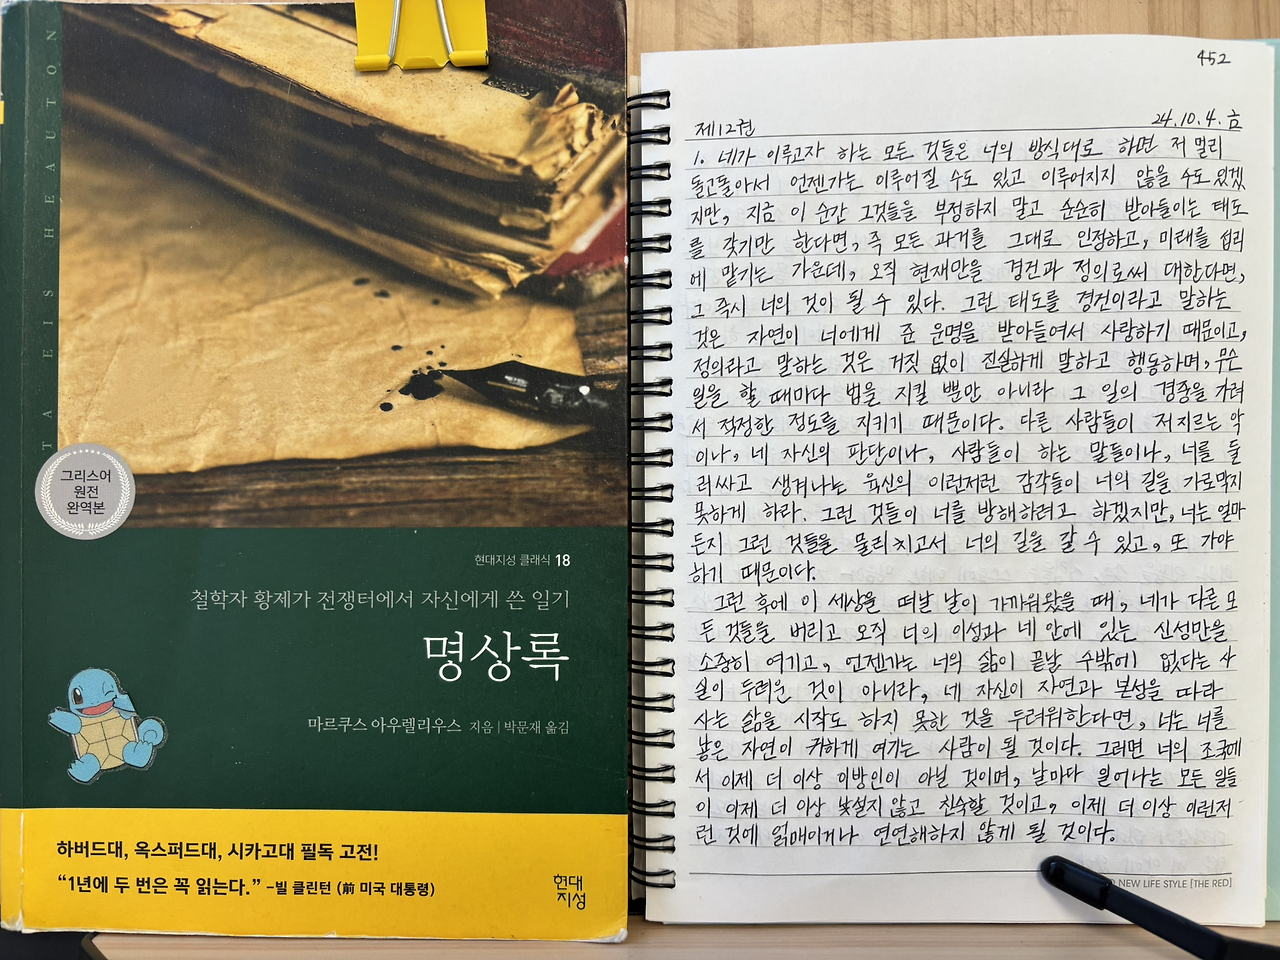 TA EIS HEAUTON
그리스어
원전
완역본
현대지성 클래식 18
철학자 황제가 전쟁터에서 자신에게 쓴 일기
명상록
마르쿠스 아우렐리우스 지음 | 박문재 옮김
하버드대, 옥스퍼드대, 시카고대 필독 고전!
“1년에 두 번은 꼭 읽는다.” –빌 클린턴 (前 미국 대통령)
현대
지성
452
제12권 24.10.4.금
1. 네가 이루고자 하는 모든 것들은 너의 방식대로 하면 저 멀리
돌고돌아서 언젠가는 이루어질 수도 있고 이루어지지 않을 수도 있겠
지만, 지금 이 순간 그것들을 부정하지 말고 순순히 받아들이는 태도
를 갖기만 한다면, 즉 모든 과거를 그대로 인정하고, 미래를 섭리
에 맡기는 가운데, 오직 현재만을 경건과 정의로써 대한다면,
그 즉시 너의 것이 될 수 있다. 그런 태도를 경건이라고 말하는
것은 자연이 너에게 준 운명을 받아들여서 사랑하기 때문이고,
정의라고 말하는 것은 거짓 없이 진실하게 말하고 행동하며, 무슨
일을 할 때마다 법을 지킬 뿐만 아니라 그 일의 경중을 가려
서 적정한 정도를 지키기 때문이다. 다른 사람들이 저지르는 악
이나, 네 자신의 판단이나, 사람들이 하는 말들이나, 너를 둘
러싸고 생겨나는 육신의 이런저런 감각들이 너의 길을 가로막지
못하게 하라. 그런 것들이 너를 방해하려고 하겠지만, 너는 얼마
든지 그런 것들을 물리치고서 너의 길을 갈 수 있고, 또 가야
하기 때문이다.
그런 후에 이 세상을 떠날 날이 가까워왔을 때, 네가 다른 모
든 것들을 버리고 오직 너의 이성과 네 안에 있는 신성만을
소중히 여기고, 언젠가는 너의 삶이 끝날 수밖에 없다는 사
실이 두려운 것이 아니라, 네 자신이 자연과 본성을 따라
사는 삶을 시작도 하지 못한 것을 두려워한다면, 너는 너를
낳은 자연이 귀하게 여기는 사람이 될 것이다. 그러면 너의 조국에
서 이제 더 이상 이방인이 아닐 것이며, 날마다 일어나는 모든 일들
이 이제 더 이상 낯설지 않고 친숙할 것이고, 이제 더 이상 이런저
런 것에 얽매이거나 연연해하지 않게 될 것이다.
NEW LIFE STYLE [THE RED]